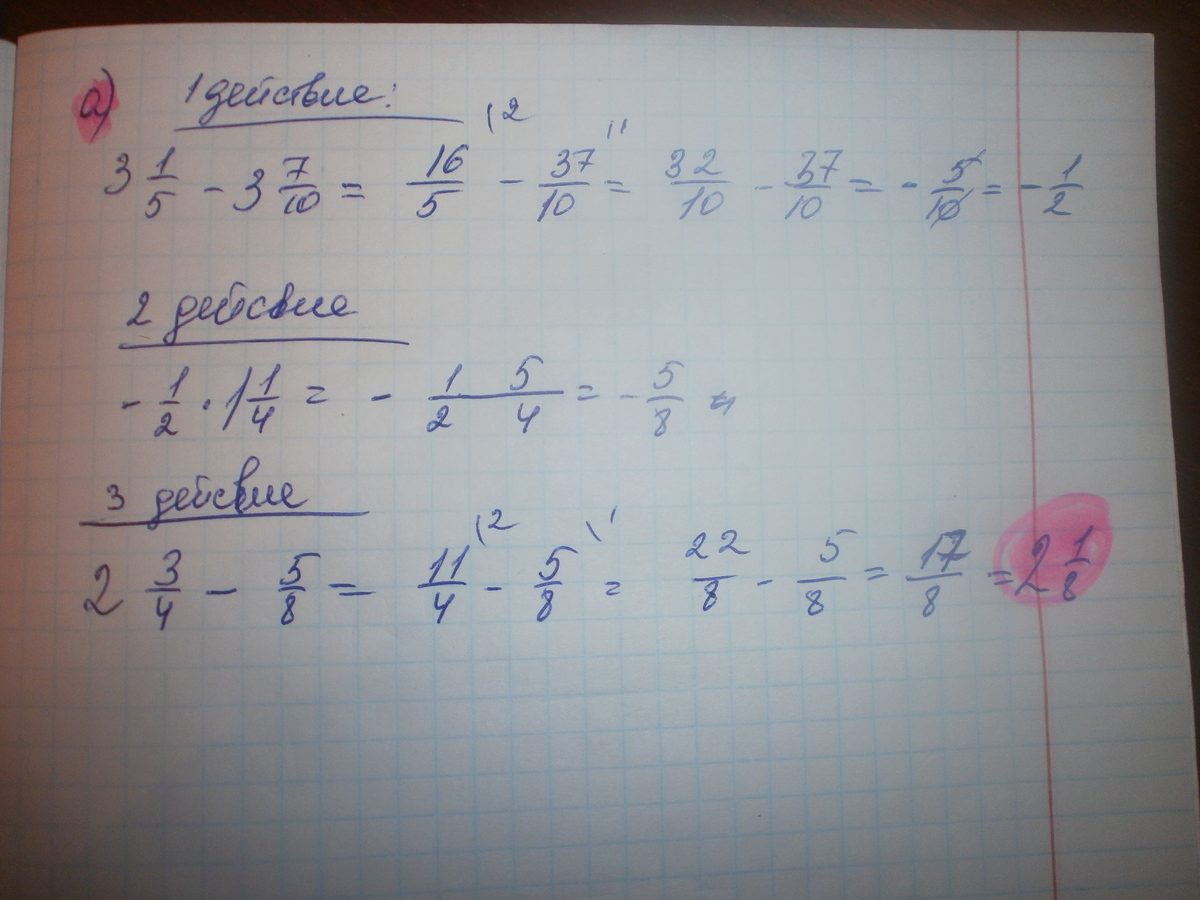 а) 1 действие:
3 1/5 - 3 7/10 = 16/5 \2 - 37/10 \1 = 32/10 - 37/10 = - 5/10 = - 1/2
2 действие
- 1/2 · 1 1/4 = - 1 5/2 4 = - 5/8
3 действие
2 3/4 - 5/8 = 11/4 \2 - 5/8 \1 = 22/8 - 5/8 = 17/8 = 2 1/8